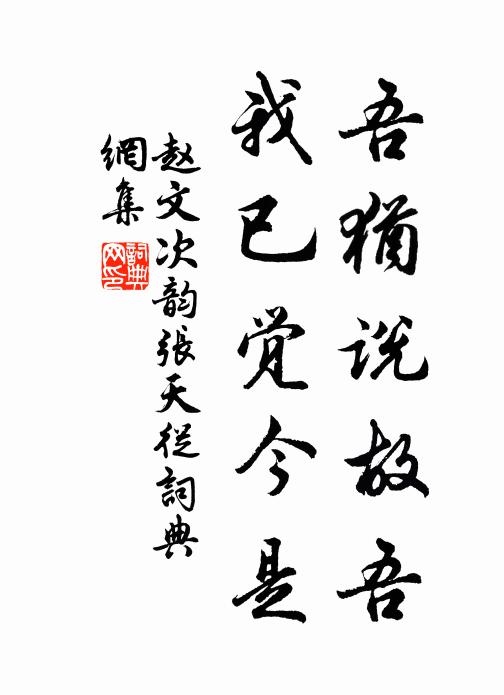 吾猶说故吾
我已觉今是
赵文次韵張天従詞典
網集
詞典
网印